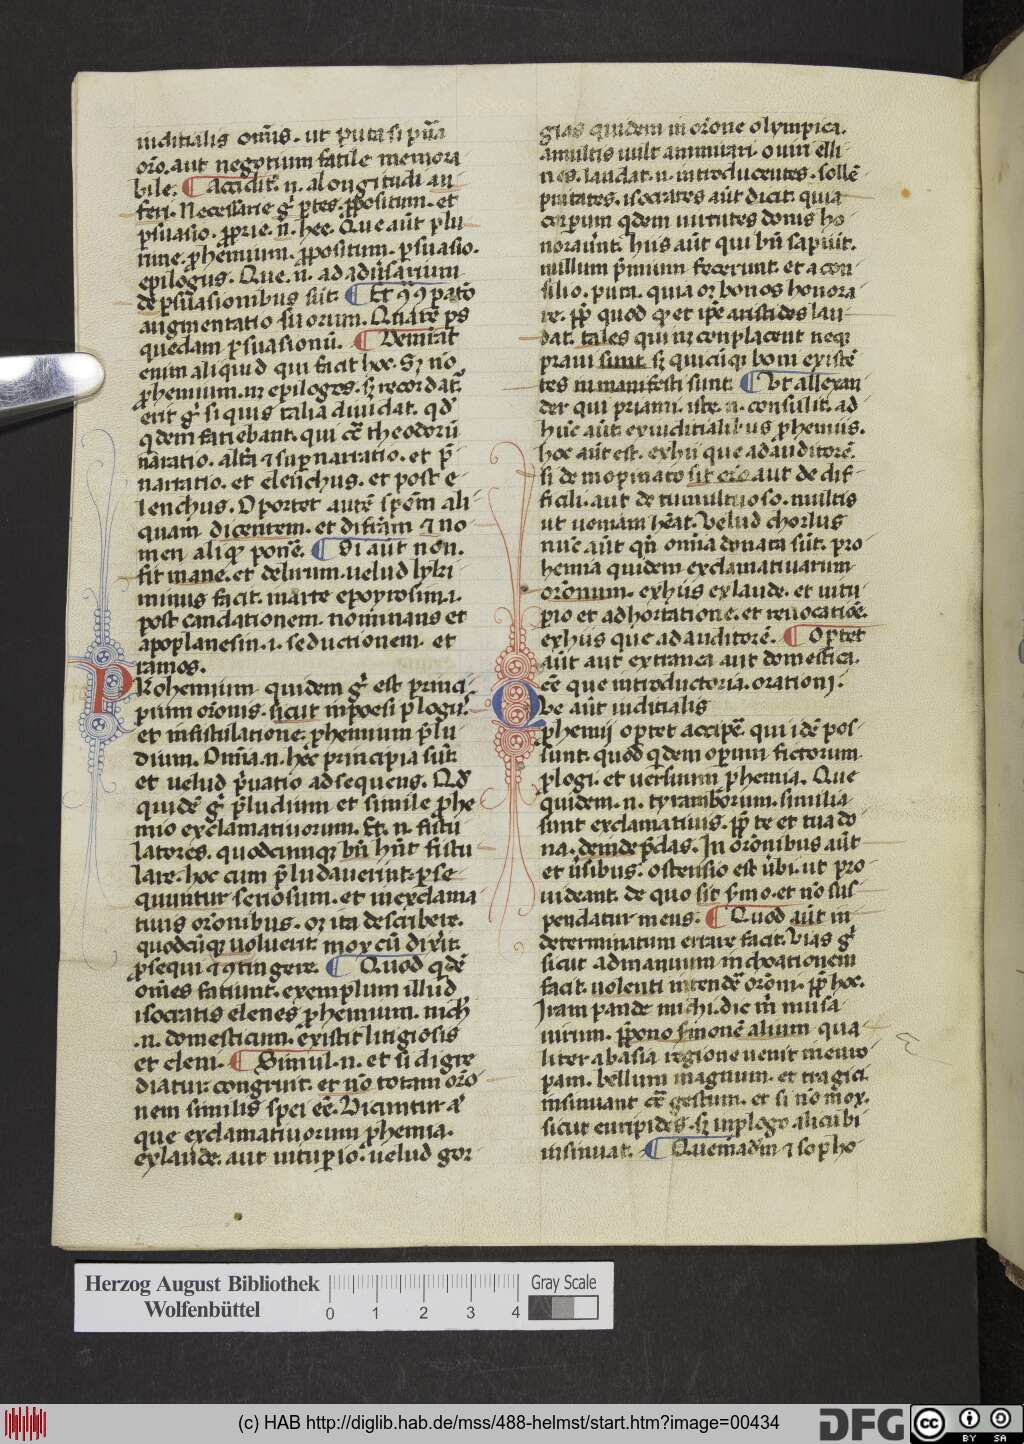 iudicialis om̄is. ut puta si p̄ua
or̄o. aut negotium facile memora
bile. ¶ Accidit. n. a longitudi au
feri. Necessarie gͥ ptes. ppositum. et
psuasio. pprie. n̄. hec. Que aut̄ plu
rime. phemium. ppositum. psuasio.
epilogus. Que. n̄. ad adūsarium
de psuasionibus sūt. ¶ Et
augmentatio suorum. Quare ps
quedam psuasionū. ¶ Demrat
enim aliquid qui facit hoc. Sꝫ no
phemium. nꝫ epiloges. sꝫ recordat.
erit gͥ si quis talia diuidat. qd̄
qdem faciebant. qui cē theodorū
narratio. alta ⁊ supnarratio. et p̄
narratio. et elenchus. et post e
lenchus. Oportet autē spem ali
quam dicentem. et difram ⁊ no
men aliqͥ ponē. ¶ Si aut non.
fit mane. et delirum. uelud lyki
minus facit. in arte epoyrosim. i.
post candationem nominans et
apoplanesin. i. seductionem et
ramos.
PRohemium quidem gͥ est princi
pium oronis. sicut in poesi plogꝰ.
et in fistulatione. phemium plu
dium. Omia. n. hec principia sūt.
et uelud puatio ad sequens. Qd
quidē gͥ pludium et simile phe
mio exclamatiuorum. Et. n. fistu
latores. quodcumqꝫ bn̄ hn̄t fistu
lare. hoc cum pludauerint. pse
quuntur seriosum. et in exclama
tiuis oronibus. oꝫ ita describere.
quodcūqꝫ uoluerit. mox cū dixit.
psequi ⁊ ꝯtingere. ¶ Quod qdē
omes faciunt. exemplum illud
isocratis elenes phemium. nich
.n. domesticum. existit litigiosis
et eleni. ¶ Simul. n. et si digre
diatur. congruit. et no totam oro
nem similis spei eē. Dicuntur aͭ
que exclamatiuorum phemia.
ex laude. aut uituperio. uelud gor
gias quidem in orone olympica.
a multis uult ammirari. o uiri elli
nes. laudat. n. introducentes. sollē
pnitates. isocrates aut̄ dicit. quia
corpum qdem uirtutes donis ho
norauūnt. hiis aut̄ qui bn̄ sapiūt.
nullum p̄mium fecerunt. et a con
silio. puta. quia oꝫ bonos honora
re. pp quod qͥ et ipe aristides lau
dat. tales qui nꝫ conplacent neqꝫ
praui sunt. sꝫ quicūqꝫ boni existē
tes in manifesti sunt. ¶ Vt allexan
der qui priami. iste. n. consulit. ad
huc aut̄. ex iudicialibus phemiis.
hoc aut̄ est. ex hii que ad auditorē.
si de inopinato sit oro aut de dif
ficili. aut de tumultuoso. multis
ut ueniam heat. Velud chorlus
nuc aut̄ qn̄ omia donata sūt. pro
hemia quidem exclamatiuarum
oronum. ex hiis ex laude. et uitu
pio et adhortatione. et reuocatioē.
ex hiis que ad auditorē. ¶ Optet
aut̄ aut extranea aut domestica.
eē que introductoria. orationi.
QVe aut̄ iudicialis
phemii optet accipē. qui idē pos
sunt. quod qdem operum fictorum
plogi. et uersuum phemia. Que
quidem. n. tyramborum. similia
sunt exclamatiuis. pp te et tua do
na. deinde pdas. In oronibus aut̄
et ūsibus. ostensio est ūbi. ut pro
uideant. de quo sit smo. et no sus
pendatur mens. ¶ Quod aut̄ in
determinatum errare facit. Vias gͥ
sicut ad manuum inchoationem
facit. uolenti intendē oroni. pp hoc.
Iram pande michi. dic m̄ musa
uirum. ppono smonē alium qua
liter ab asia regione uenit in euro
pam. bellum magnum. et tragici.
insinuant cē gestum. et si no mox.
sicut euripides. sꝫ in plogo alicubi
insinuat. ¶ Quemadm ⁊ sopho
Herzog August Bibliothek
Wolfenbüttel
0 1 2 3 4
Gray Scale
(c) HAB http://diglib.hab.de/mss/488-helmst/start.htm?image=00434
DFG
cc BY SA